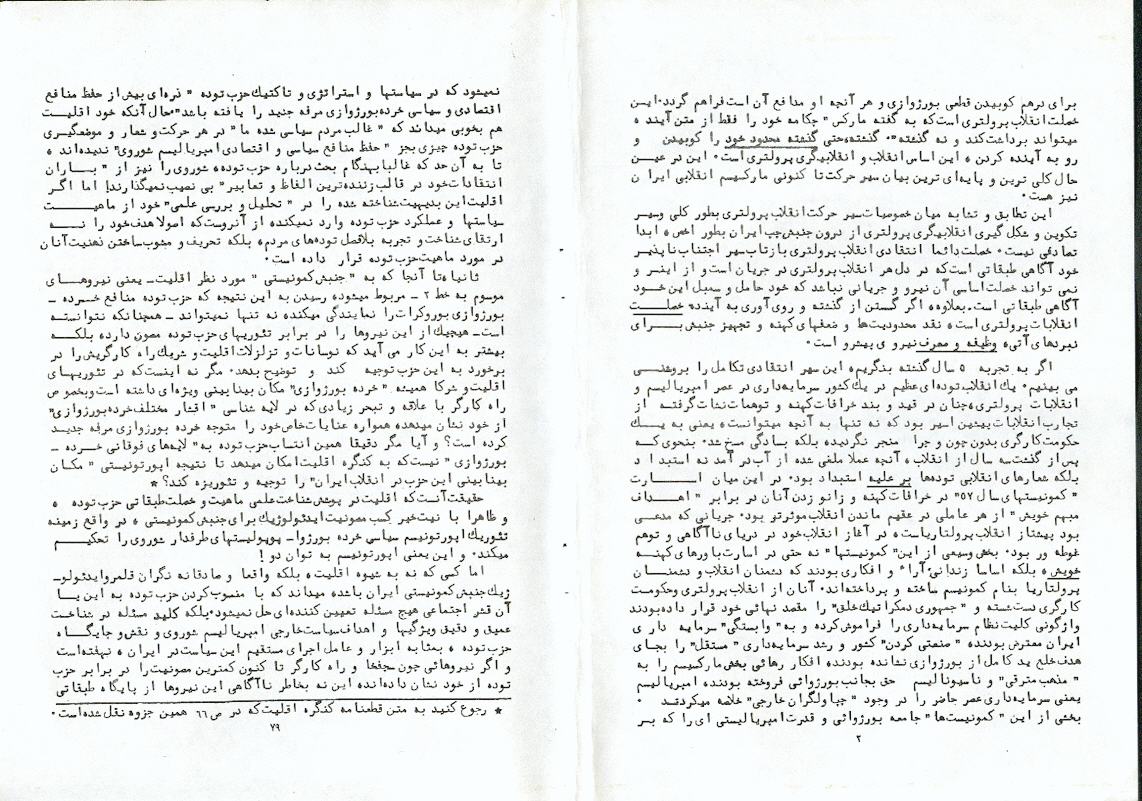 برای درهم کوبیدن قطعی بورژوازی و هر آنچه او مدافع آن است فراهم گردد. این
خصلت انقلاب پرولتری است که به گفته مارکس " چکامه خود را فقط از متن آینده
میتواند برداشت کند و نه گذشته". گذشته، حتی گذشته محدود خود را کوبیدن و
رو به آینده کردن، این اساس انقلاب و انقلابیگری پرولتری است. این در عین
حال کلی ترین و پایه ای ترین بیان سیر حرکت تا کنونی مارکسیم انقلابی ایران
نیز هست.
این تطابق و تشابه میان خصوصیات سیر حرکت انقلاب پرولتری بطور کلی و سیر
تکوین و شکل گیری انقلابیگری پرولتری از درون جنبش چپ ایران بطور اخص، ابدا
تصادفی نیست. خصلت دائما انتقادی انقلاب پرولتری بازتاب سیر اجتناب ناپذیر
خود آگاهی طبقاتی است که در دل هر انقلاب پرولتری در جریان است و از اینرو
نمی تواند خصلت اساسی آن نیرو و جریانی نباشد که خود حامل و سمبل این خود
آگاهی طبقاتی است. بعلاوه، اگر گسستن از گذشته و روی آوری به آینده خصلت
انقلابات پرولتری است، نقد محدودیت ها و ضعفهای کهنه و تجهیز جنبش برای
نبردهای آتی، وظیفه و معرف نیروی پیشرو است.
اگر به تجربه ۵ سال گذشته بنگریم، این سیر انتقادی تکامل را بروشنی
می بینیم. یک انقلاب توده ای عظیم در یک کشور سرمایه داری در عصر امپریالیسم و
انقلابات پرولتری، چنان در قید و بند خرافات کهنه و توهمات نشات گرفته از
تجارب انقلابات پیشین اسیر بود که نه تنها به آنچه میتوانست، یعنی به یک
حکومت کارگری بدون چون و چرا منجر نگردیده بلکه بسادگی مسخ شد. بنحوی که
پس از گذشت سه سال از انقلاب، آنچه عملا ملغی شده از آب در آمد نه استبداد
بلکه شعارهای انقلابی توده‌ها بر علیه استبداد بود. در این میان اسارت
" کمونیستهای سال ۵۷" در خرافات کهنه و زانو زدن آنان در برابر " اهداف
مبهم خویش" از هر عاملی در عقیم ماندن انقلاب موثرتر بود. جریانی که مدعی
بود پیشتاز انقلاب پرولتاریاست، در آغاز انقلاب خود در دریای ناآگاهی و توهم
غوطه ور بود. بخش وسیعی از این" کمونیستها" نه حتی در اسارت باورهای کهنه
خویش، بلکه اساسا زندانی آراء و افکاری بودند که دشمنان انقلاب و دشمنان
پرولتاریا بنام کمونیسم ساخته و پرداخته اند. آنان از انقلاب پرولتری و حکومت
کارگری دست شسته و " جمهوری دمکراتیک خلق" را مقصد نهائی خود قرار داده بودند
واژگونی کلیت نظام سرمایه داری را فراموش کرده و به" وابستگی" سرمایه داری
ایران معترض بودند، " صنعتی کردن" کشور و رشد سرمایه داری " مستقل" را بجای
هدف خلع ید کامل از بورژوازی نشانده بودند، افکار رهائی بخش مارکسیم را به
" مذهب مترقی" و ناسیونالیسم حق بجانب بورژوائی فروخته بودند، امپریالیسم
یعنی سرمایه داری عصر حاضر را در وجود " چپاولگران خارجی" خلاصه میکردند.
بخشی از این " کمونیست‌ها" جامعه بورژوائی و قدرت امپریالیستی ای را که بر
۲
نمیشود که در سیاستها و استراتژی و تاکتیک حزب توده " ذره ای بیش از حفظ منافع
اقتصادی و سیاسی خرده بورژوازی مرفه جدید را یافته باشد". حال آنکه خود اقلیت
هم بخوبی میداند که " غالب مردم سیاسی شده ما" در هر حرکت و شعار و موضعگیری
حزب توده چیزی بجز " حفظ منافع سیاسی و اقتصادی امپریالیسم شوروی" ندیده اند،
تا به آن حد که غالبا بهنگام بحث درباره حزب توده، شوروی را نیز از " باران
انتقادات خود در قالب زننده ترین الفاظ و تعابیر" بی نصیب نمیگذارند! اما اگر
اقلیت این بدیهیت شناخته شده را در " تحلیل و بررسی علمی" خود از ماهیت
سیاستها و عملکرد حزب توده وارد نمیکند، از آنروست که اصولا هدف خود را نه
ارتقای شناخت و تجربه بلافصل توده های مردم، بلکه تحریف و مشوب ساختن ذهنیت آنان
در مورد ماهیت حزب توده قرار داده است.
ثانیا، تا آنجا که به " جنبش کمونیستی" مورد نظر اقلیت - یعنی نیروهای
موسوم به خط ۲ - مربوط میشود، رسیدن به این نتیجه که حزب توده منافع خرده -
بورژوازی بوروکرات را نمایندگی میکند، نه تنها نمیتواند - همچنانکه نتوانسته
است - هیچیک از این نیروها را در برابر تئوریهای حزب توده مصون دارد، بلکه
بیشتر به این کار می آید که نوسانات و تزلزلات اقلیت و شریک راه کارگریش را در
برخورد به این حزب توجیه کند و توضیح بدهد. مگر نه اینست که در تئوریهای
اقلیت و شرکا همیشه " خرده بورژوازی" مکان بینابینی ویژه ای داشته است و بخصوص
راه کارگر با علاقه و تبحر زیادی که در لایه شناسی " اقشار مختلف خرده بورژوازی"
از خود نشان میدهد، همواره عنایات خاص خود را متوجه خرده بورژوازی مرفه جدید
کرده است؟ و آیا مگر دقیقا همین انتساب حزب توده به" لایه های فوقانی خرده -
بورژوازی" نیست که به کنگره اقلیت امکان میدهد تا نتیجه اپورتونیستی " مکان
بینابینی این حزب در انقلاب ایران" را توجیه و تئوریزه کند؟ *
حقیقت آنست که اقلیت در پوشش شناخت علمی ماهیت و خصلت طبقاتی حزب توده،
و ظاهرا با نیت خیر کسب مصونیت ایدئولوژیک برای جنبش کمونیستی، در واقع زمینه
تئوریک اپورتونیسم سیاسی خرده بورژوا - پوپولیستهای طرفدار شوروی را تحکیم
میکند. و این یعنی اپورتونیسم به توان دو!
اما کسی که نه به شیوه اقلیت، بلکه واقعا و صادقانه نگران قلمرو ایدئولو-
ژیک جنبش کمونیستی ایران باشد، میداند که با منسوب کردن حزب توده به این یا
آن قشر اجتماعی هیچ مسئله تعیین کننده ای حل نمیشود. بلکه کلید مسئله در شناخت
عمیق و دقیق ویژگیها و اهداف سیاست خارجی امپریالیسم شوروی و نقش و جایگاه
حزب توده، بمثابه ابزار و عامل اجرای مستقیم این سیاست در ایران، نهفته است
و اگر نیروهائی چون چفخا و راه کارگر تا کنون کمترین مصونیت را در برابر حزب
توده از خود نشان داده اند، این نه بخاطر ناآگاهی این نیروها از پایگاه طبقاتی
* رجوع کنید به متن قطعنامه کنگره اقلیت که در ص ۶۶ همین جزوه نقل شده است.
۷۹